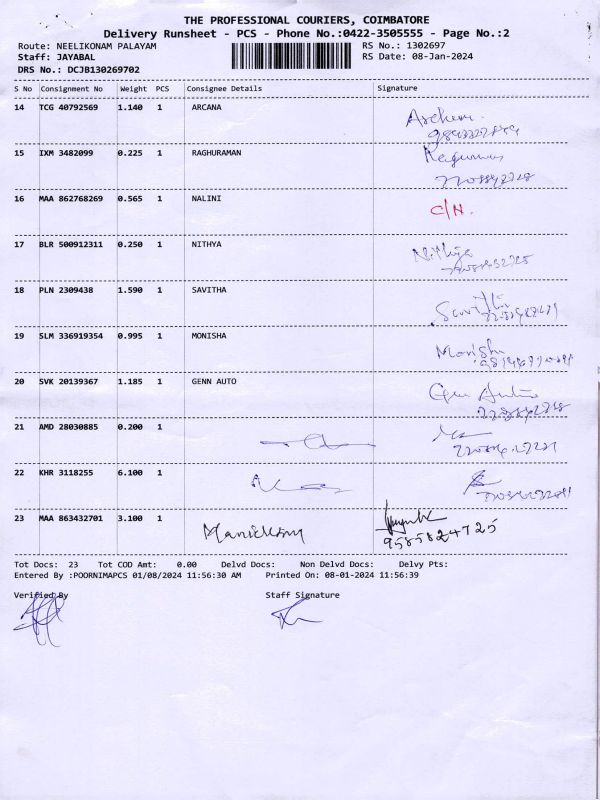 THE PROFESSIONAL COURIERS, COIMBATORE
Delivery Runsheet - PCS - Phone No.:0422-3505555 - Page No.:2
Route: NEELIKONAM PALAYAM RS No.: 1302697
Staff: JAYABAL RS Date: 08-Jan-2024
DRS No.: DCJB130269702
S No Consignment No Weight PCS Consignee Details Signature
14 TCG 40792569 1.140 1 ARCANA
15 IXM 3482099 0.225 1 RAGHURAMAN
16 MAA 862768269 0.565 1 NALINI C/N.
17 BLR 500912311 0.250 1 NITHYA
18 PLN 2309438 1.590 1 SAVITHA
19 SLM 336919354 0.995 1 MONISHA
20 SVK 20139367 1.185 1 GENN AUTO
21 AMD 28030885 0.200 1
22 KHR 3118255 6.100 1
23 MAA 863432701 3.100 1 Manickam
9585824725
Tot Docs: 23 Tot COD Amt: 0.00 Delvd Docs: Non Delvd Docs: Delvy Pts:
Entered By :POORNIMAPCS 01/08/2024 11:56:30 AM Printed On: 08-01-2024 11:56:39
Verified By Staff Signature